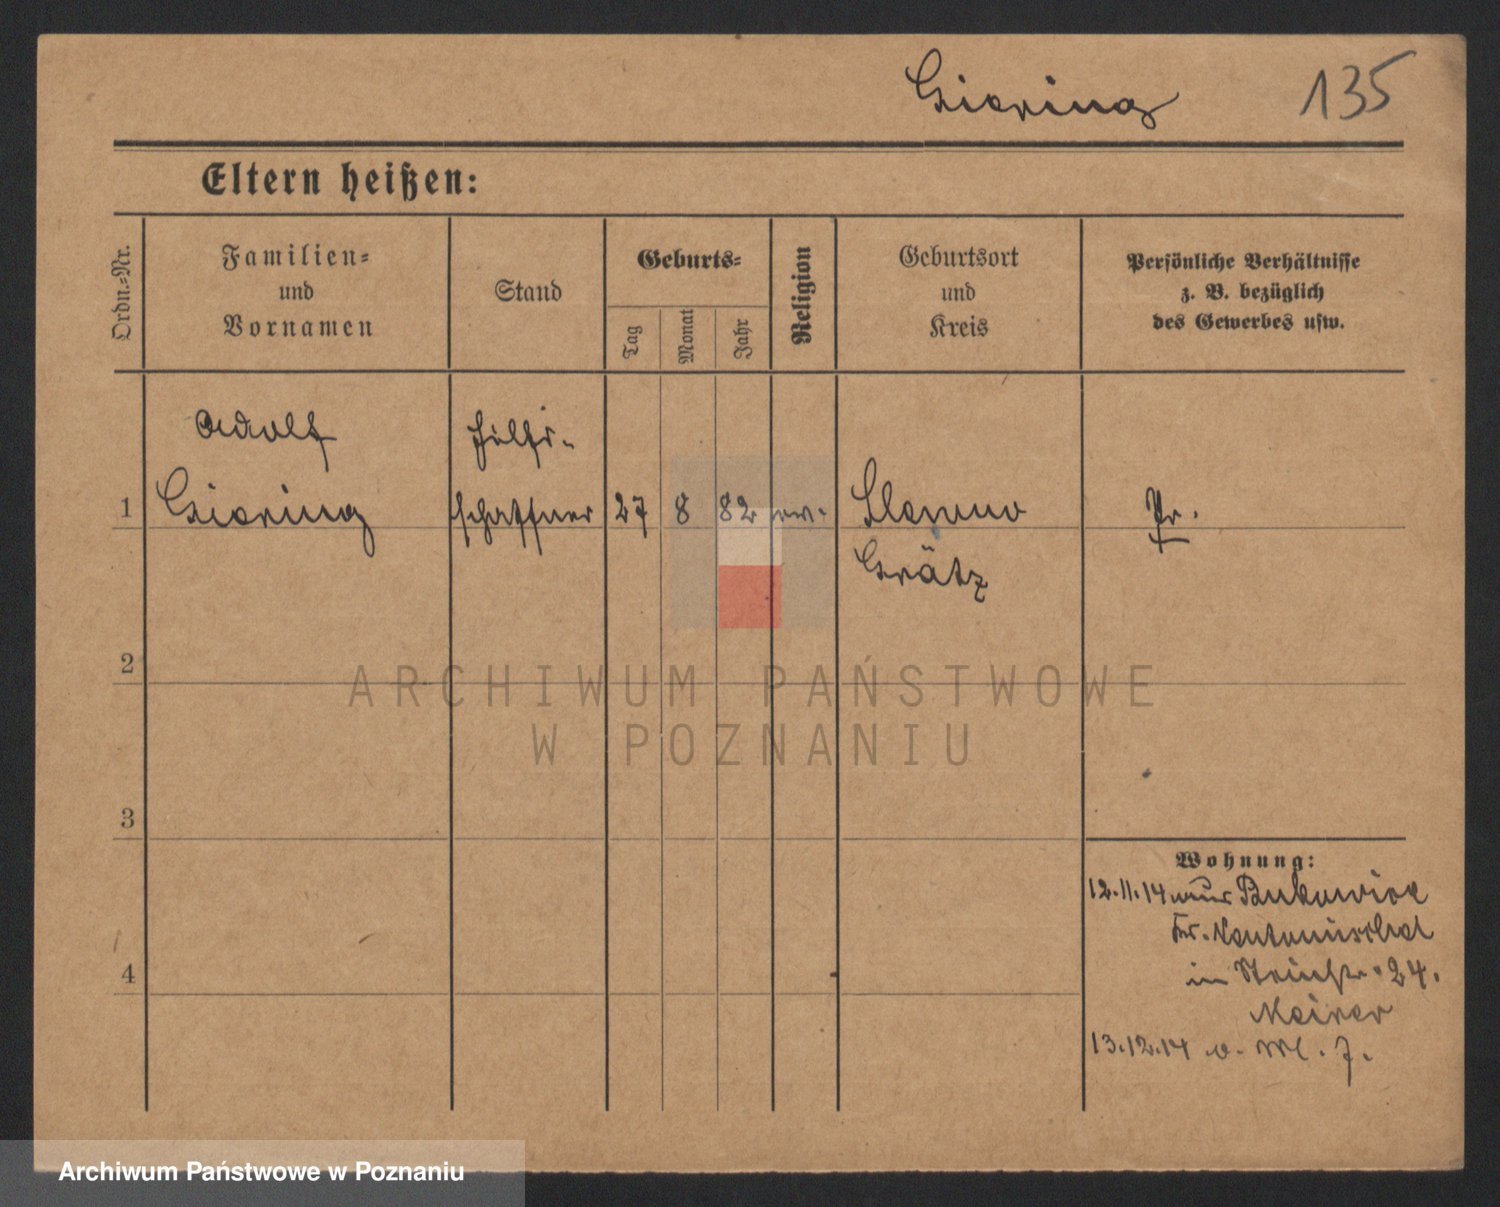 Giering 135
Eltern heißen:
Ordn.-Nr.
Familien-
und
Vornamen
Stand
Geburts-
Tag
Monat
Jahr
Religion
Geburtsort
und
Kreis
Persönliche Verhältnisse
z. B. bezüglich
des Gewerbes usw.
Adolf Hilfs-
1 Giering schaffner 27 8 82 ev. Pr.
Grätz
2
ARCHIWUM PAŃSTWOWE
W POZNANIU
3
Wohnung:
12.11.14 aus
Kr.
4
in 24.
13.12.14
Archiwum Państwowe w Poznaniu